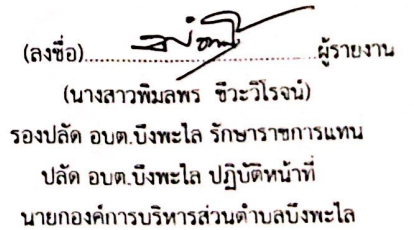 (ลงชื่อ)....................................ผู้รายงาน
(นางสาวพิมลพร ชีวะวิโรจน์)
รองปลัด อบต.บึงพะไล รักษาราชการแทน
ปลัด อบต.บึงพะไล ปฏิบัติหน้าที่
นายกองค์การบริหารส่วนตำบลบึงพะไล